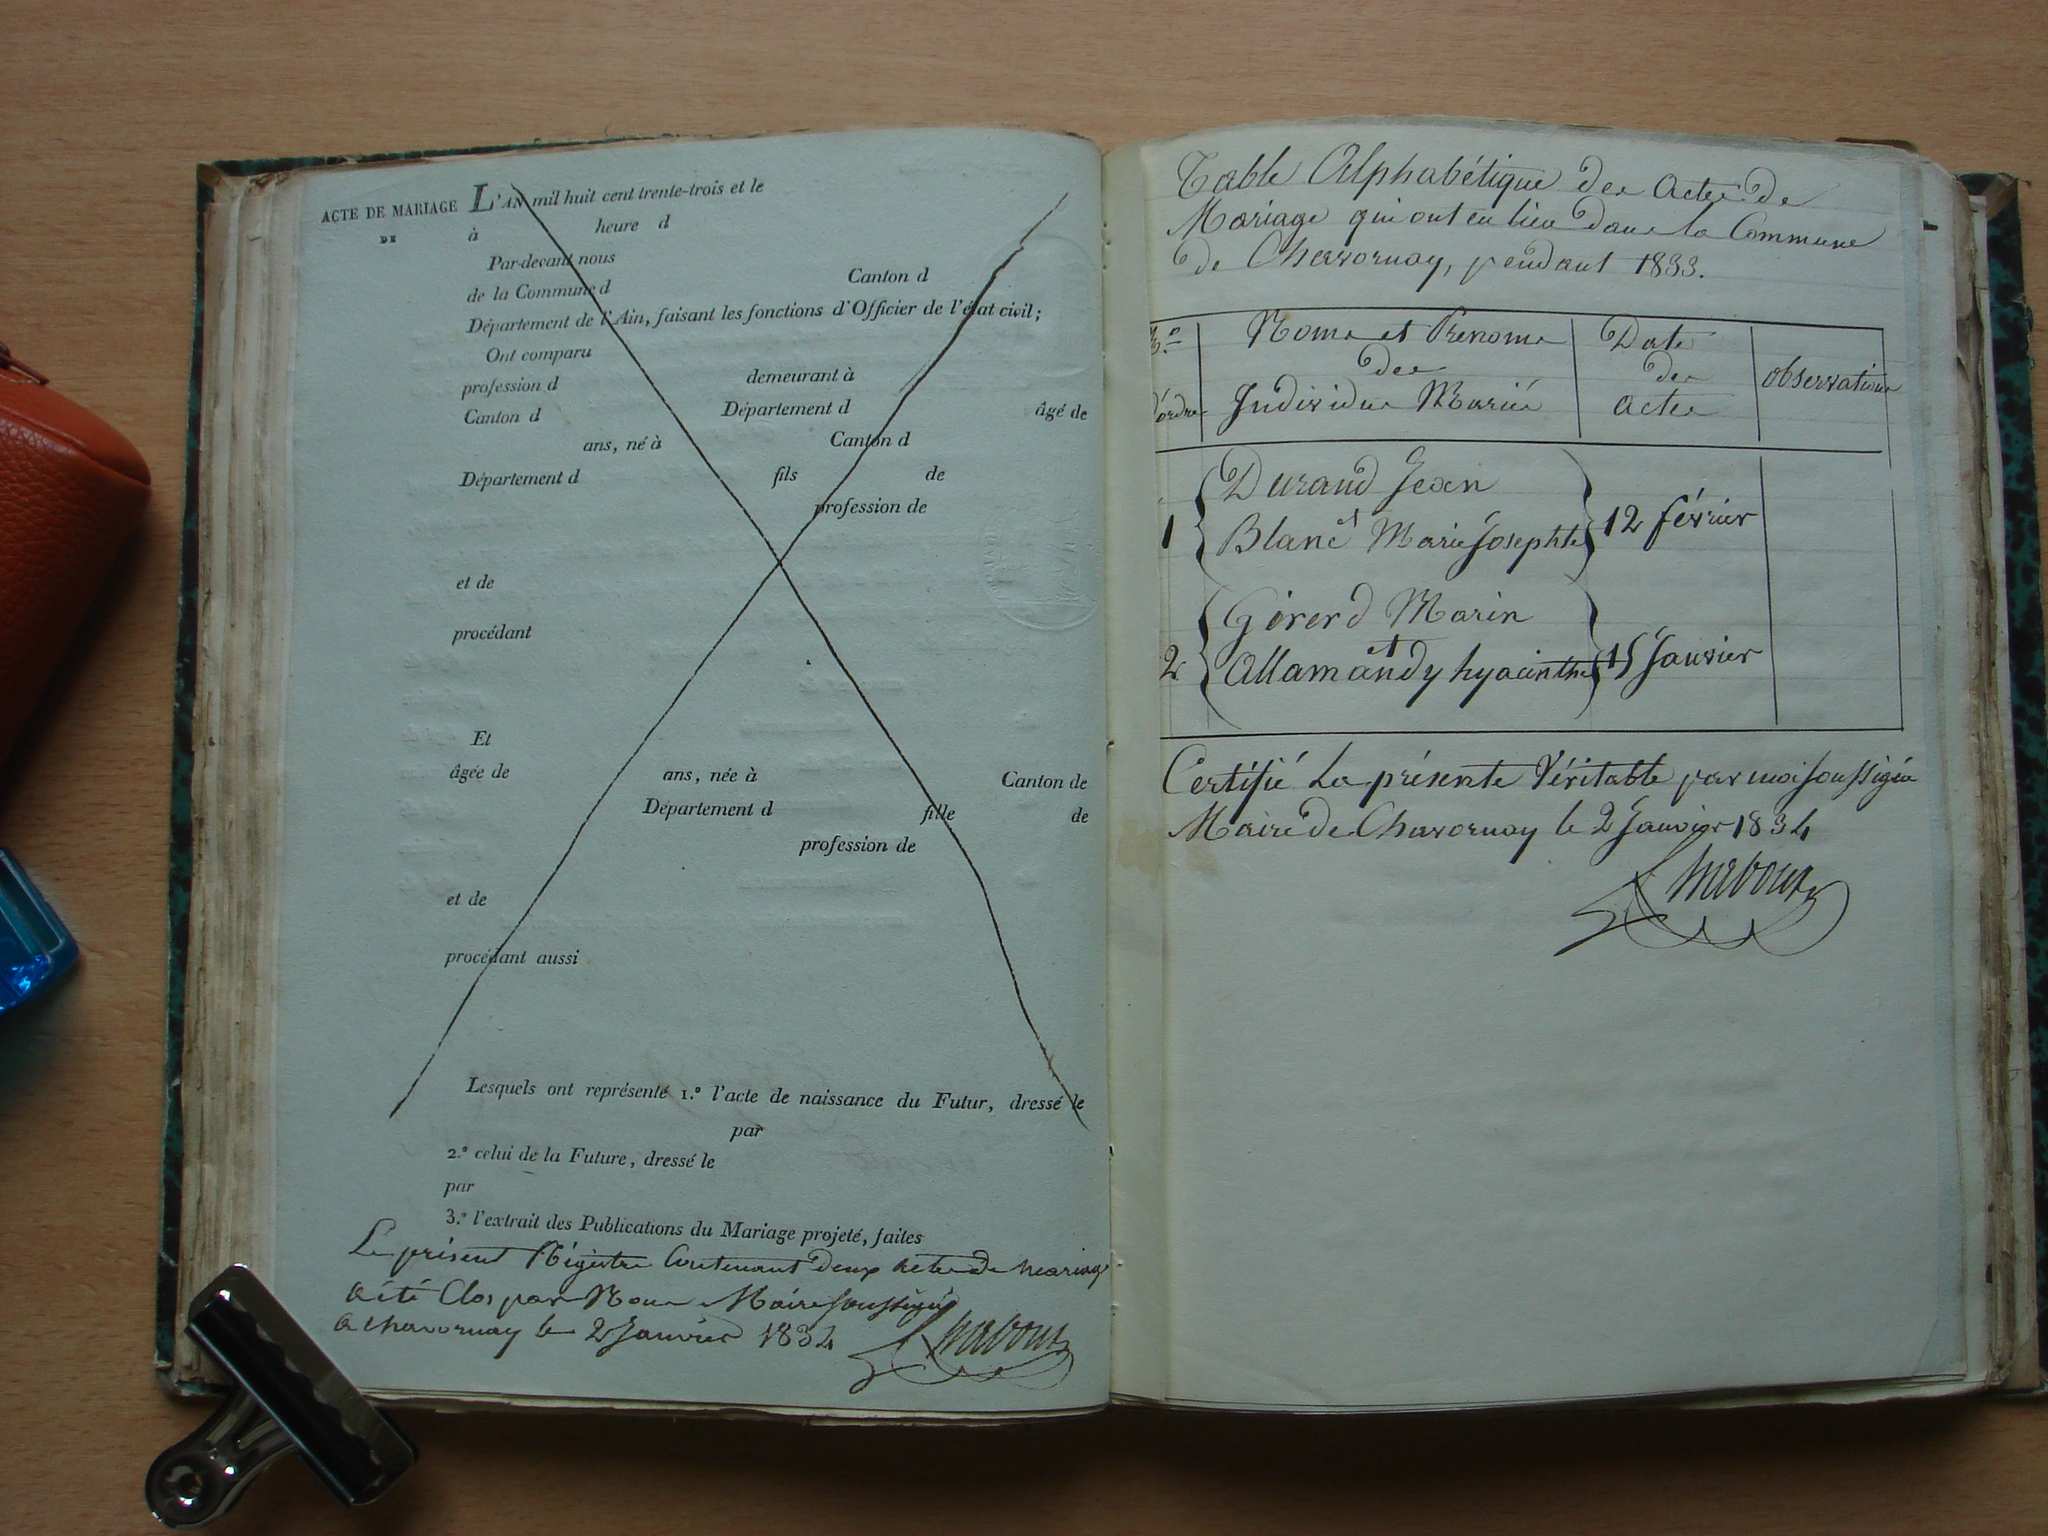 ACTE DE MARIAGE L'AN mil huit cent trente-trois et le
DE à heure d
Par-devant nous
de la Commune d Canton d
Département de l'Ain, faisant les fonctions d'Officier de l'état civil;
Ont comparu
profession d demeurant à
Canton d Département d âgé de
ans, né à Canton d
Département d fils de
profession de
et de
procédant
Et
âgée de ans, née à Canton de
Département d fille de
profession de
et de
procédant aussi
Lesquels ont représenté 1.° l'acte de naissance du Futur, dressé le
par
2.° celui de la Future, dressé le
par
3.° l'extrait des Publications du Mariage projeté, faites
Le présent Régistre Contenant deux actes de mariage
a été Clos par Nous Maire soussigné
a chavornay le 2 Janvier 1834
Table Alphabétique des Actes de
Mariage qui ont eu lieu dans la Commune
de Chavornay, pendant 1833.
N.° Noms et Prenoms Date
des des observations
d'ordre Individus Mariés actes
Durand Jean
1 et 12 février
Blanc Marie Josephte
Girerd Marin
2 et 15 Janvier
Allamandy hyacinthe
Certifié La présente Véritable par moi soussigné
Maire de Chavornay le 2 Janvier 1834